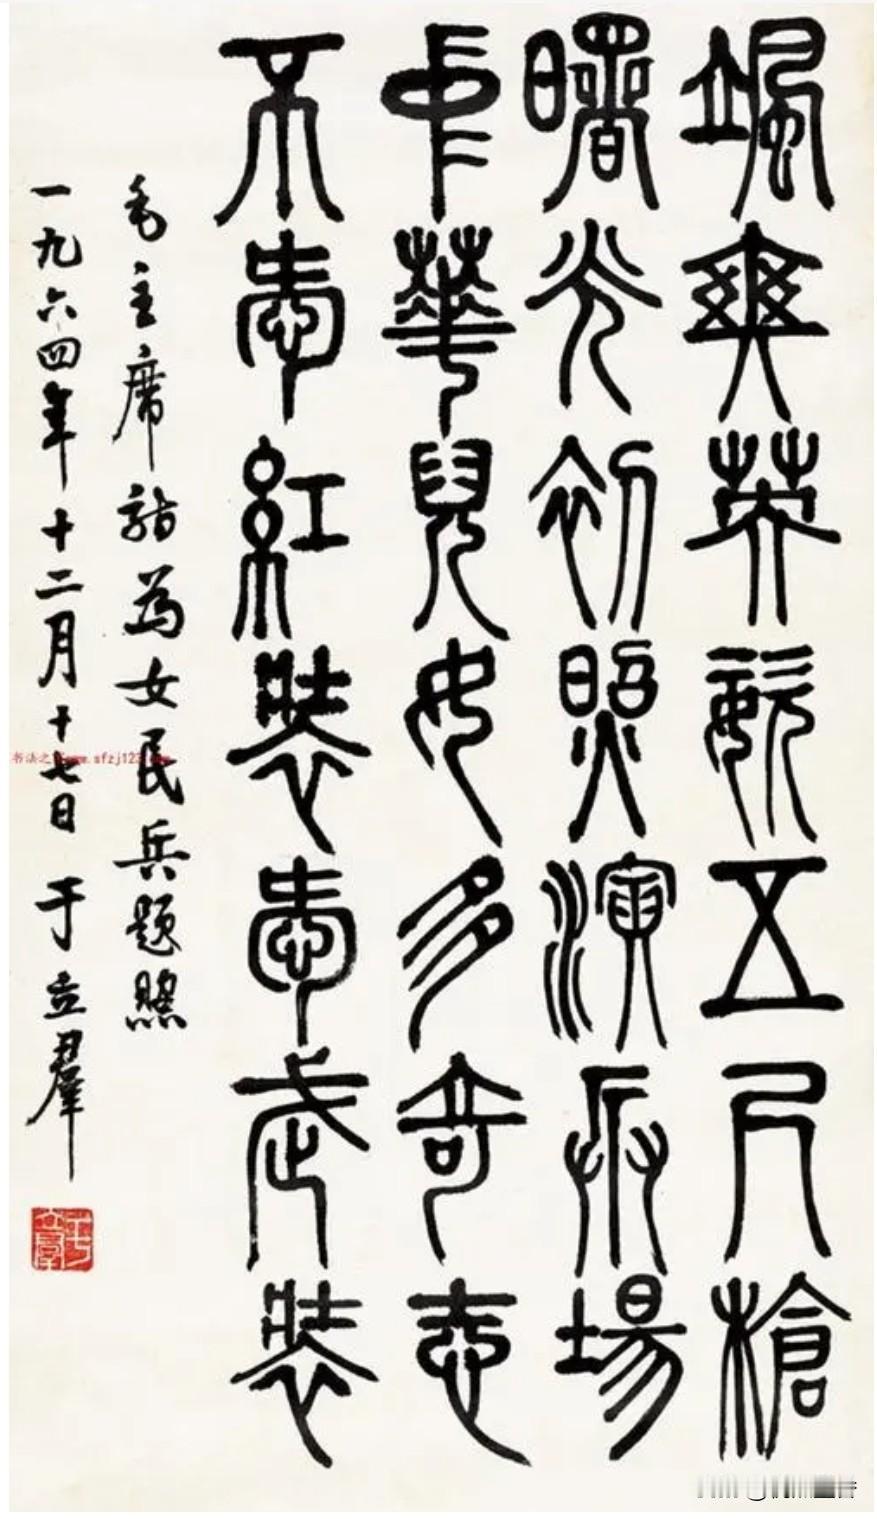 颯爽英姿五尺槍
曙光初照演兵場
中華兒女多奇志
不愛紅裝愛武裝
毛主席詩為女民兵題照
一九六四年十二月十七日 于立羣
于立羣
书法之 www.sfzj123